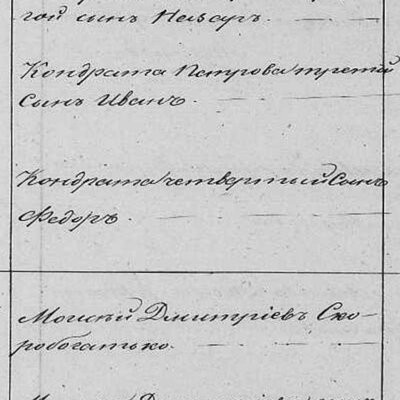 гой сынъ Назаръ.
Кондрата Петрова третій
сынъ Иванъ.
Кондрата четвертый сынъ
Федоръ.
Моисѣй Дмитріевъ Ско-
робогатько.